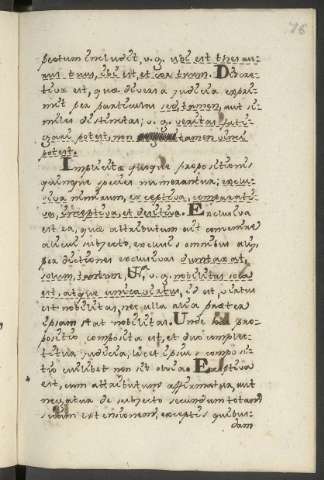 76
pectum includit, v.g. ubi est thesau-
rus tuus, ibi est, et cor tuum. Discre-
tiva est, quæ diversa judicia expri-
mit per particulas sed, tamen, aut si-
miles distinctas; v.g. veritas fati-
gari potest, non tamen vinci
potest.
Implicitæ quoque propositionis
quinque species numerantur; exclu-
siva nimirum, exceptiva, comparati-
va, inceptiva, et desitiva. Exclusiva
est ea, quæ attributum dicit convenire
alicui subjecto, exclusis omnibus aliis,
per dictiones exclusivas dumtaxat,
solum, tantum. v.g. nobilitas sola
est, atque unica virtus, id est, virtus
est nobilitas, nec ulla alia præter
ipsam stat nobilitas. Unde hæc pro-
positio composita est, et duo complec-
titur judicia, licet ipsius composi-
tio cuilibet non sit obvia. Exceptiva
est, cum attributum affirmatur, aut
negatur de subjecto secundum totam
suam extensionem, exceptis quibus-
dam